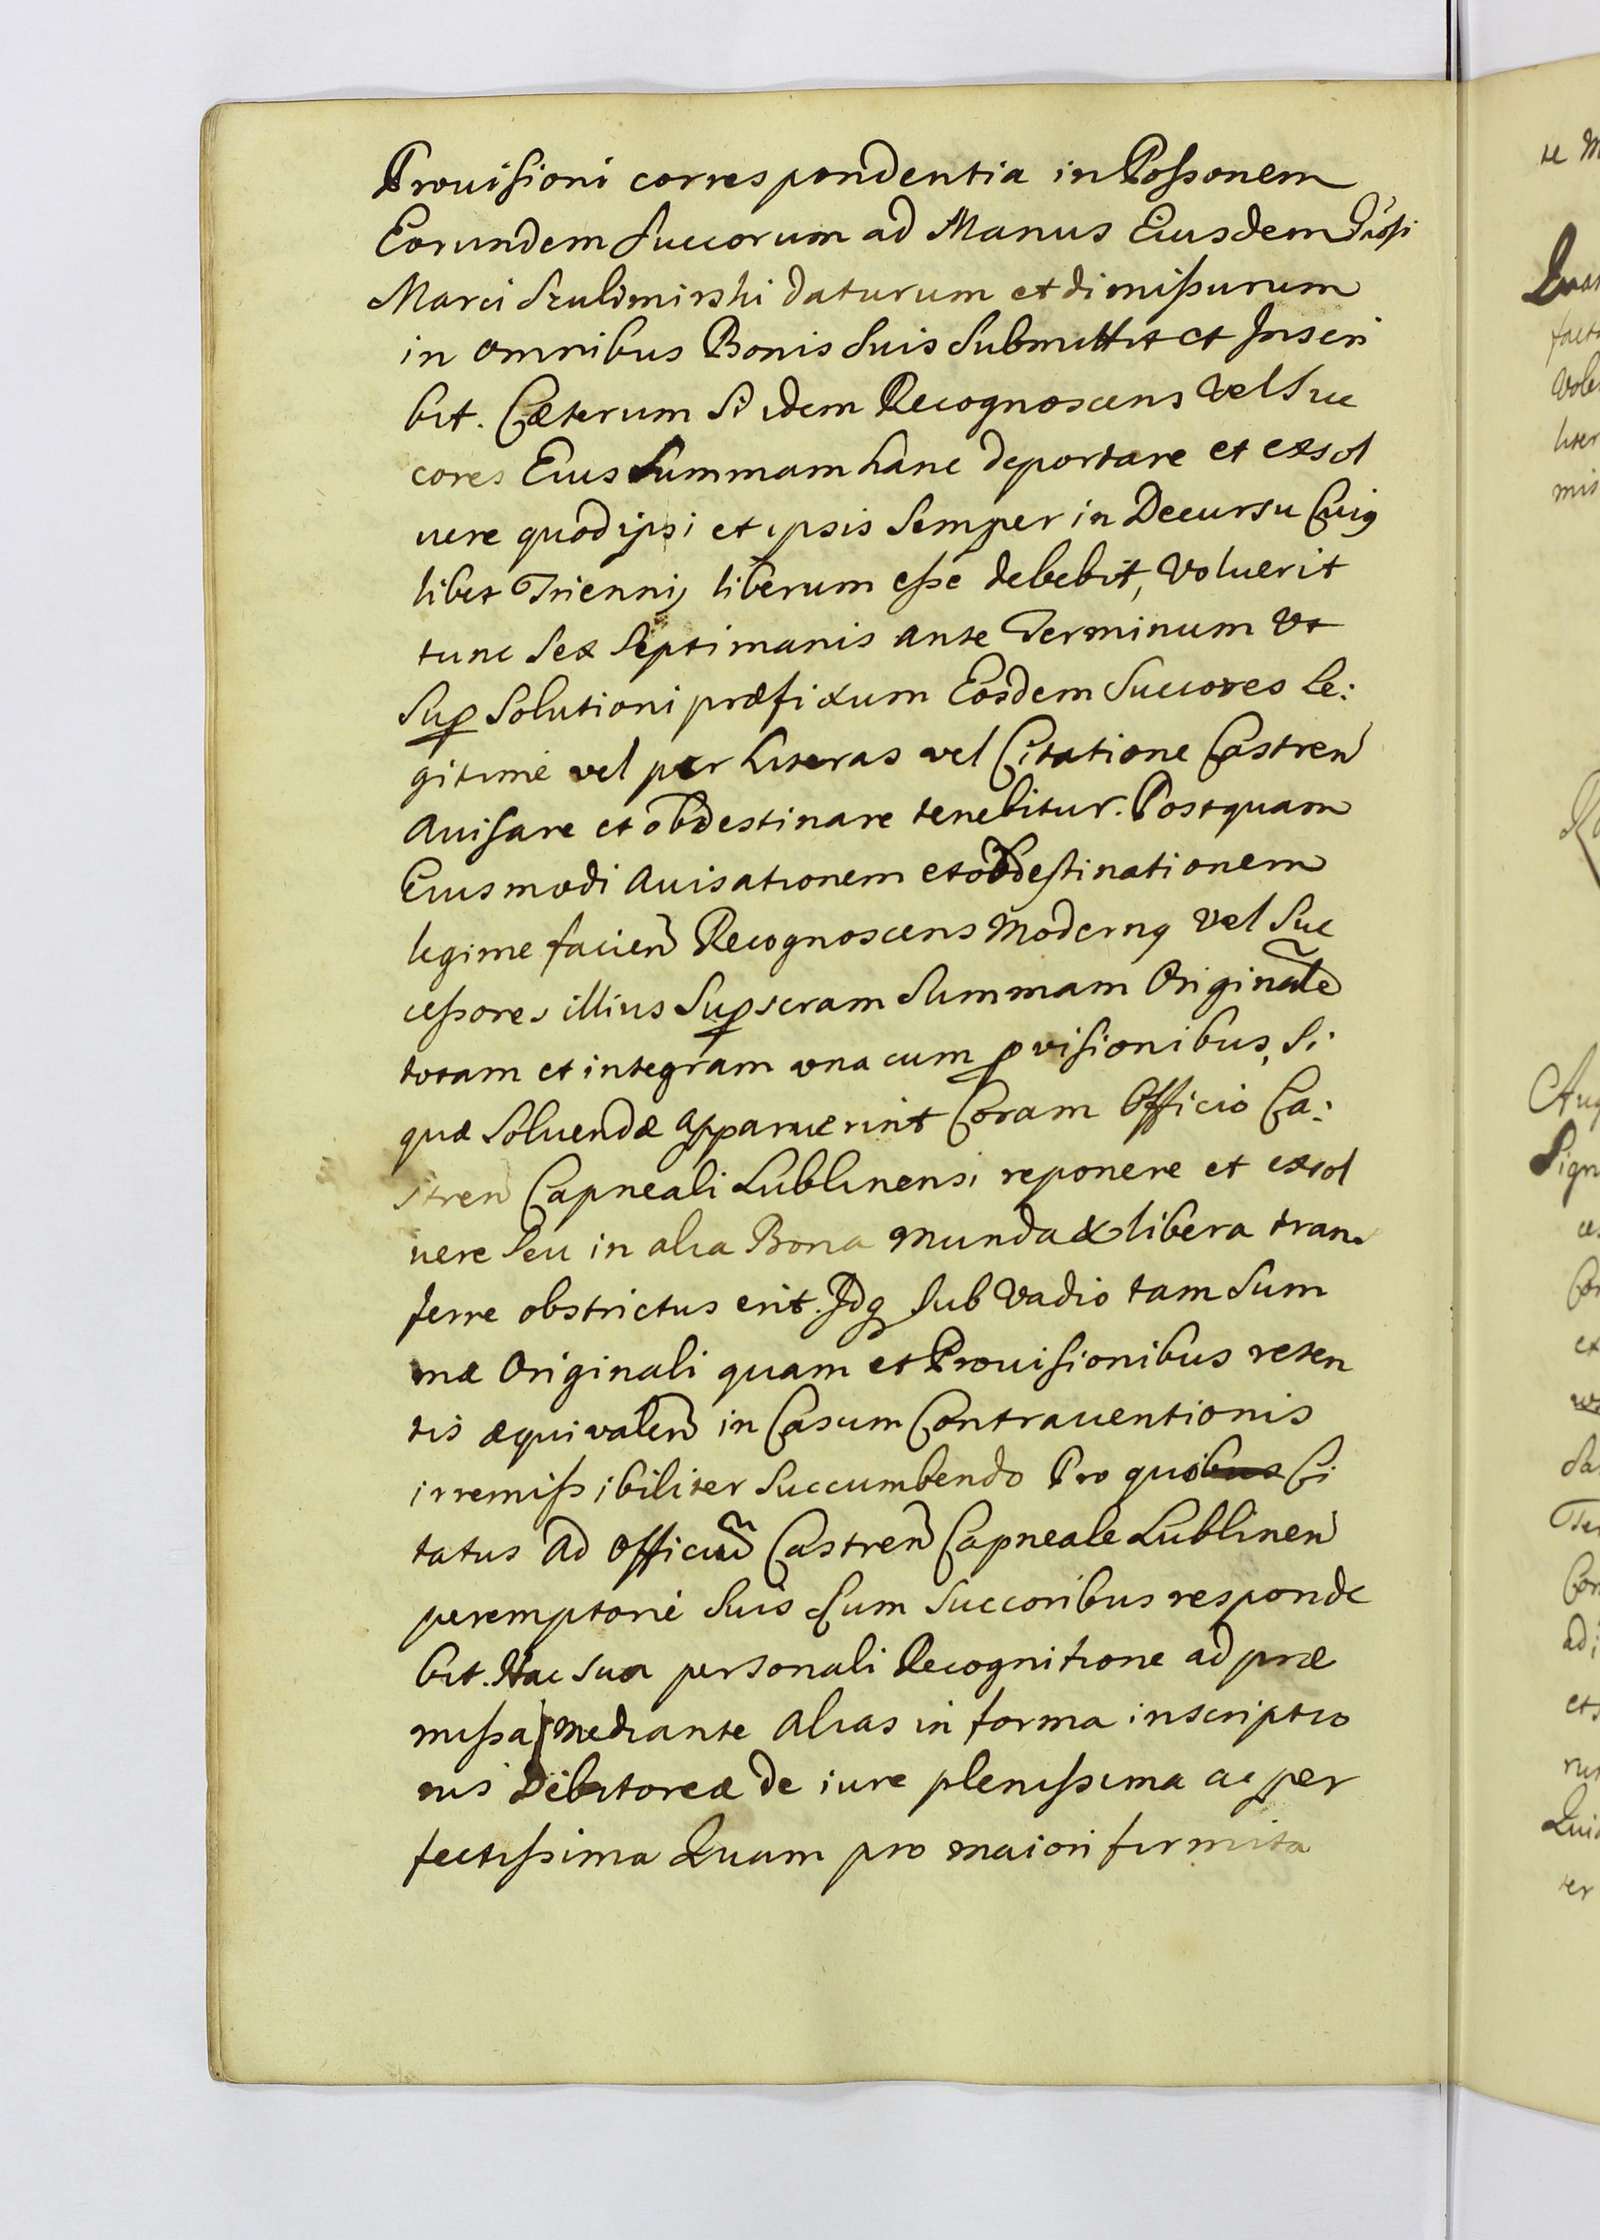 Prouisioni correspondentia in Possonem
Eorundem Succorum ad Manus Eiusdem
Marci Szulimirski daturum et dimissurum
in omnibus Bonis Suis Submittit et Inscri
bit. Cæterum Si idem Recognoscens vel Suc
cores Eius Summam hanc deportare et exsol
uere quod ipsi et ipsis Semper in Decursu Cuiq
libet Triennij liberum esse debebit, Voluerit
tunc Sex Septimanis ante Terminum Vt
Sup Solutioni præfixum Eosdem Succores Le:
gitimè vel per Literas vel Citatione Castren
Auisare et obdestinare tenebitur. Postquam
Eiusmodi Auisationem et obdestinationem
legime facien Recognoscens Modernq vel Suc
cessores illius Supscram Summam Originale
totam et integram vna cum pvisionibus, Si
quæ Soluendæ apparuerint Coram Officio Ca:
stren Capneali Lublinensi reponere et exsol
uere Seu in alia Bona munda & libera trans
ferre obstrictus erit. Idq sub Vadio tam Sum
mæ Originali quam et Prouisionibus reten
tis æquivalen in Casum Contrauentionis
irremissibiliter Succumbendo Pro quibus Ci
tatus ad Officiu Castren Capneale Lublinen
peremptoriè Suis Cum Succoribus responde
bit. Hac sua personali Recognitione ad præ
missa mediante alias in forma inscriptio
nis Debitoreæ de iure plenissima ac per
fectissima Quam pro maiori firmita